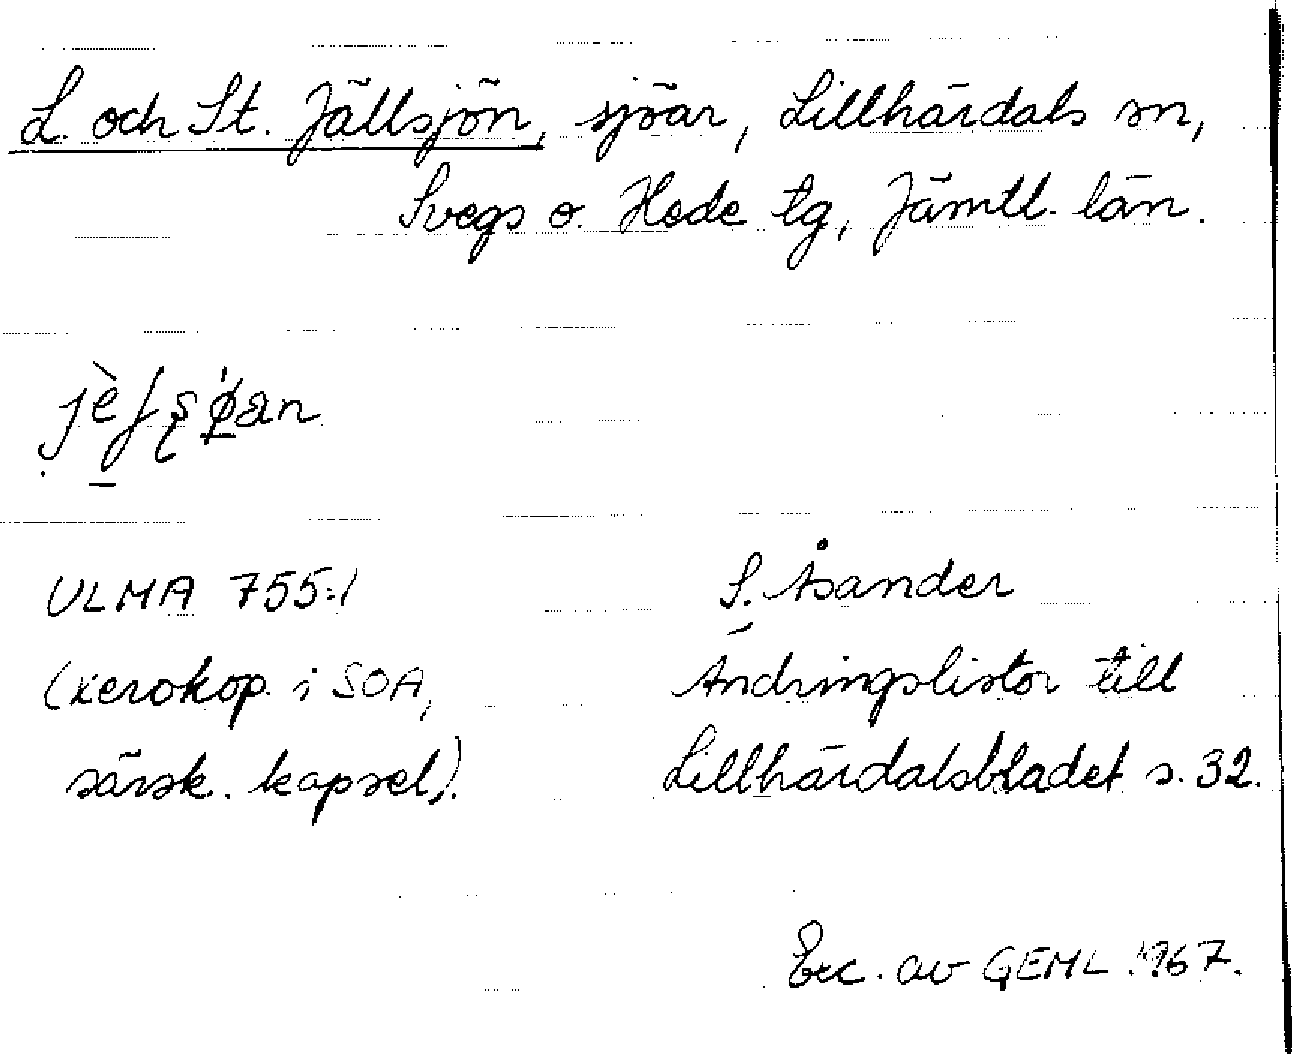 L. och St. Jällsjön, sjöar, Lillhärdals sn,
Svegs o. Hede tg, Jämtl. län.
ULMA 755:1 S. Åsander
(xerokop. i SOA, Ändringslistor till
särsk. kapsel). Lillhärdalsbladet s. 32.
Exc. av GEML 1967.